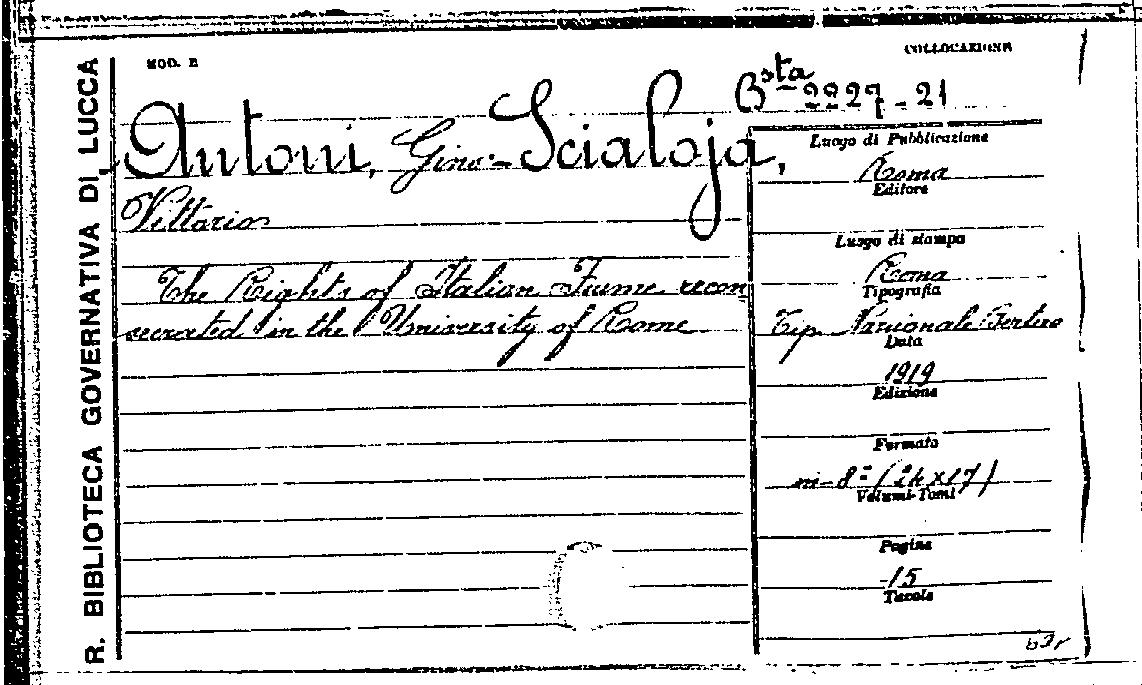 R. BIBLIOTECA GOVERNATIVA DI LUCCA
MOD. B
COLLOCAZIONE
Bsta 2227-21
Antoni, Gino - Scialoja,
Vittorio
The Rights of Italian Fiume recon
secrated in the University of Rome
Luogo di Pubblicazione
Roma
Editore
Luogo di stampa
Roma
Tipografia
Tip. Nazionale Bertero
Data
1919
Edizione
Formato
in-8° (24x17)
Volumi-Tomi
Pagine
15
Tavole